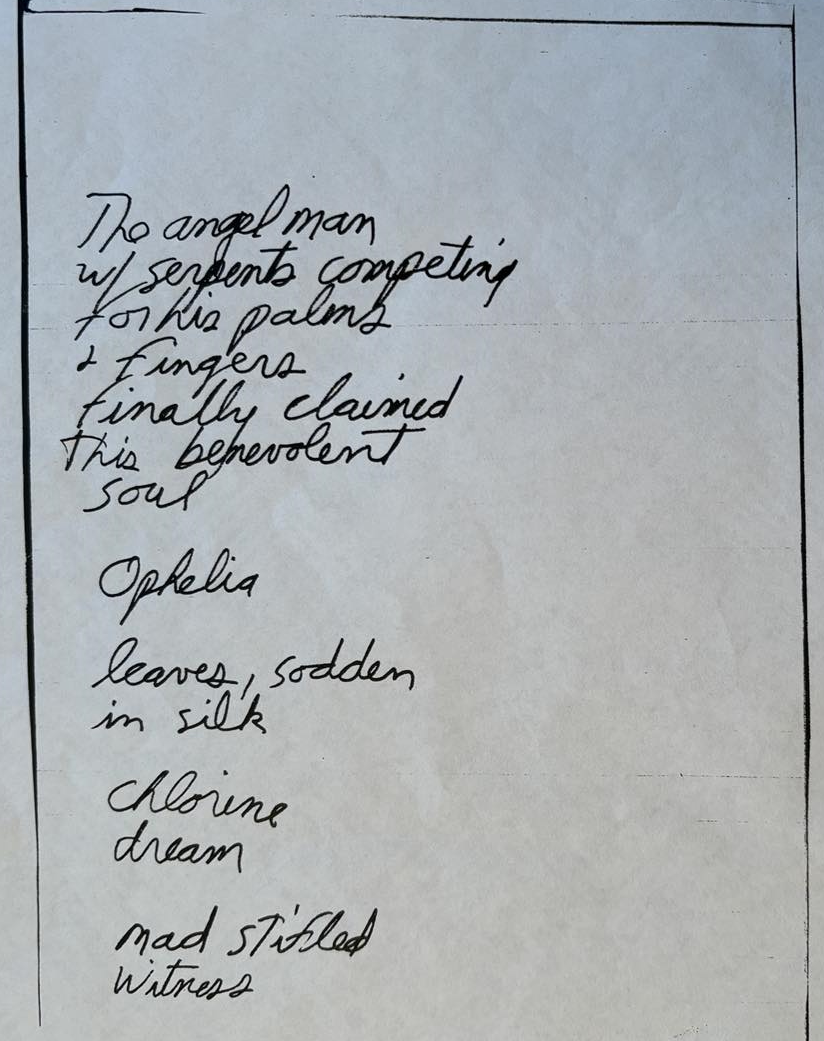 The angel man
w/ serpents competing
for his palms
& fingers
finally claimed
this benevolent
soul
Ophelia
leaves, sodden
in silk
Chlorine
dream
mad stifled
Witness